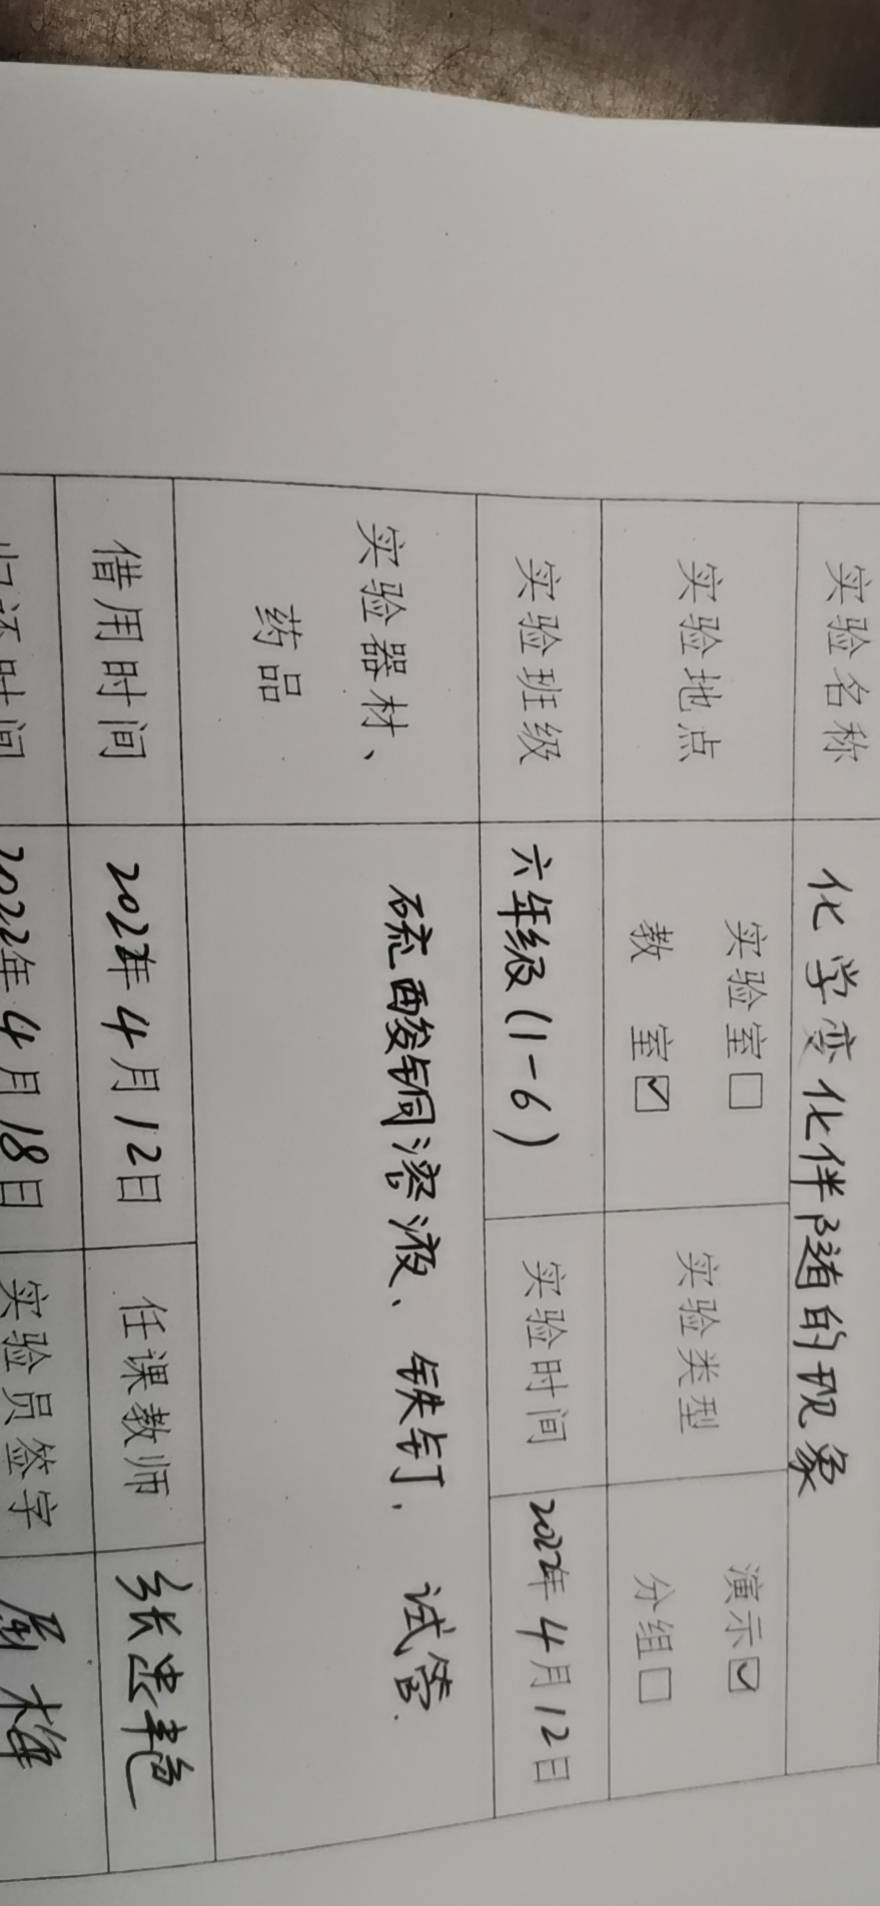 实验名称 化学变化伴随的现象
实验地点 实验室□ 教 室☑ 实验类型 演示☑ 分组□
实验班级 六年级(1-6) 实验时间 2022年4月12日
实验器材、药品 硫酸铜溶液、铁钉、试管.
借用时间 2022年4月12日 任课教师 张忠艳
归还时间 2022年4月18日 实验员签字 梅